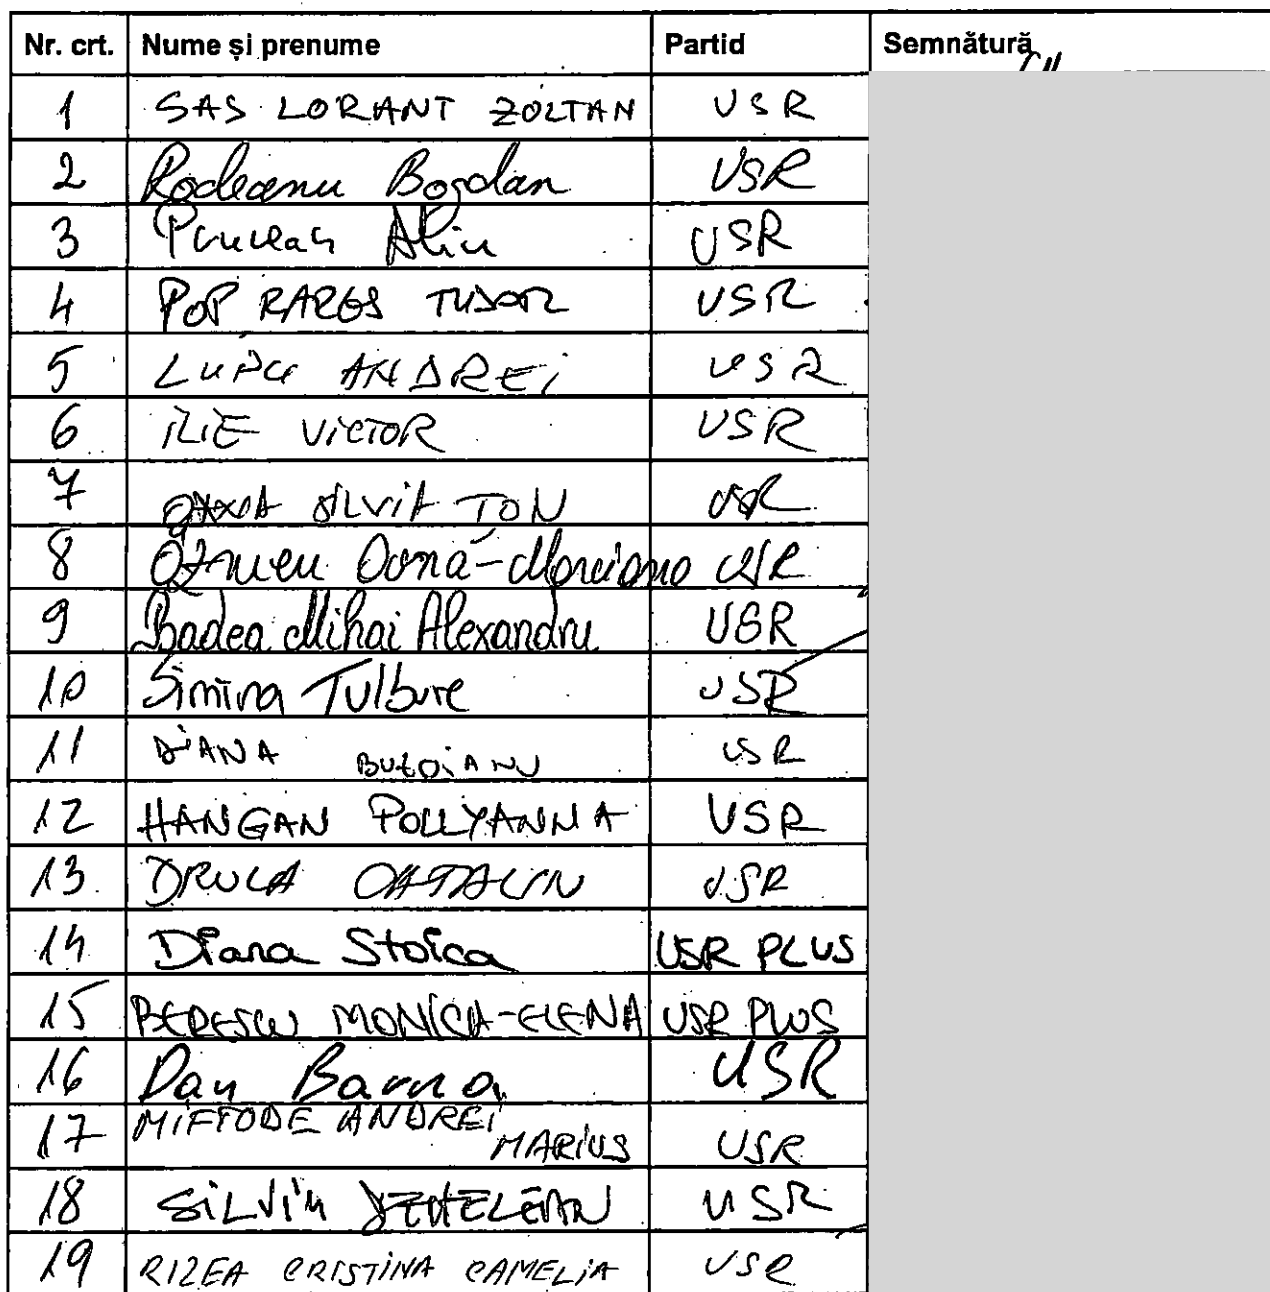 Nr. crt. Nume și prenume Partid Semnătură
1 SAS LORANT ZOLTAN USR
2 Rodeanu Bogdan USR
3 Prunean Alin USR
4 POP RARES TUDOR USR
5 LUPU ANDREI USR
6 ILIE VICTOR USR
7 USR
8 Oana-Marciana USR
9 Badea Mihai Alexandru USR
10 Simina Tulbure USR
11 DIANA BUZOIANU USR
12 HANGAN POLLYANNA USR
13 DRULA CATALIN USR
14 Diana Stoica USR PLUS
15 BERESCU MONICA-ELENA USR PLUS
16 Dan Barna USR
17 MIFTODE ANDREI
MARIUS USR
18 SILVIU DEHELEAN USR
19 RIZEA CRISTINA CAMELIA USR